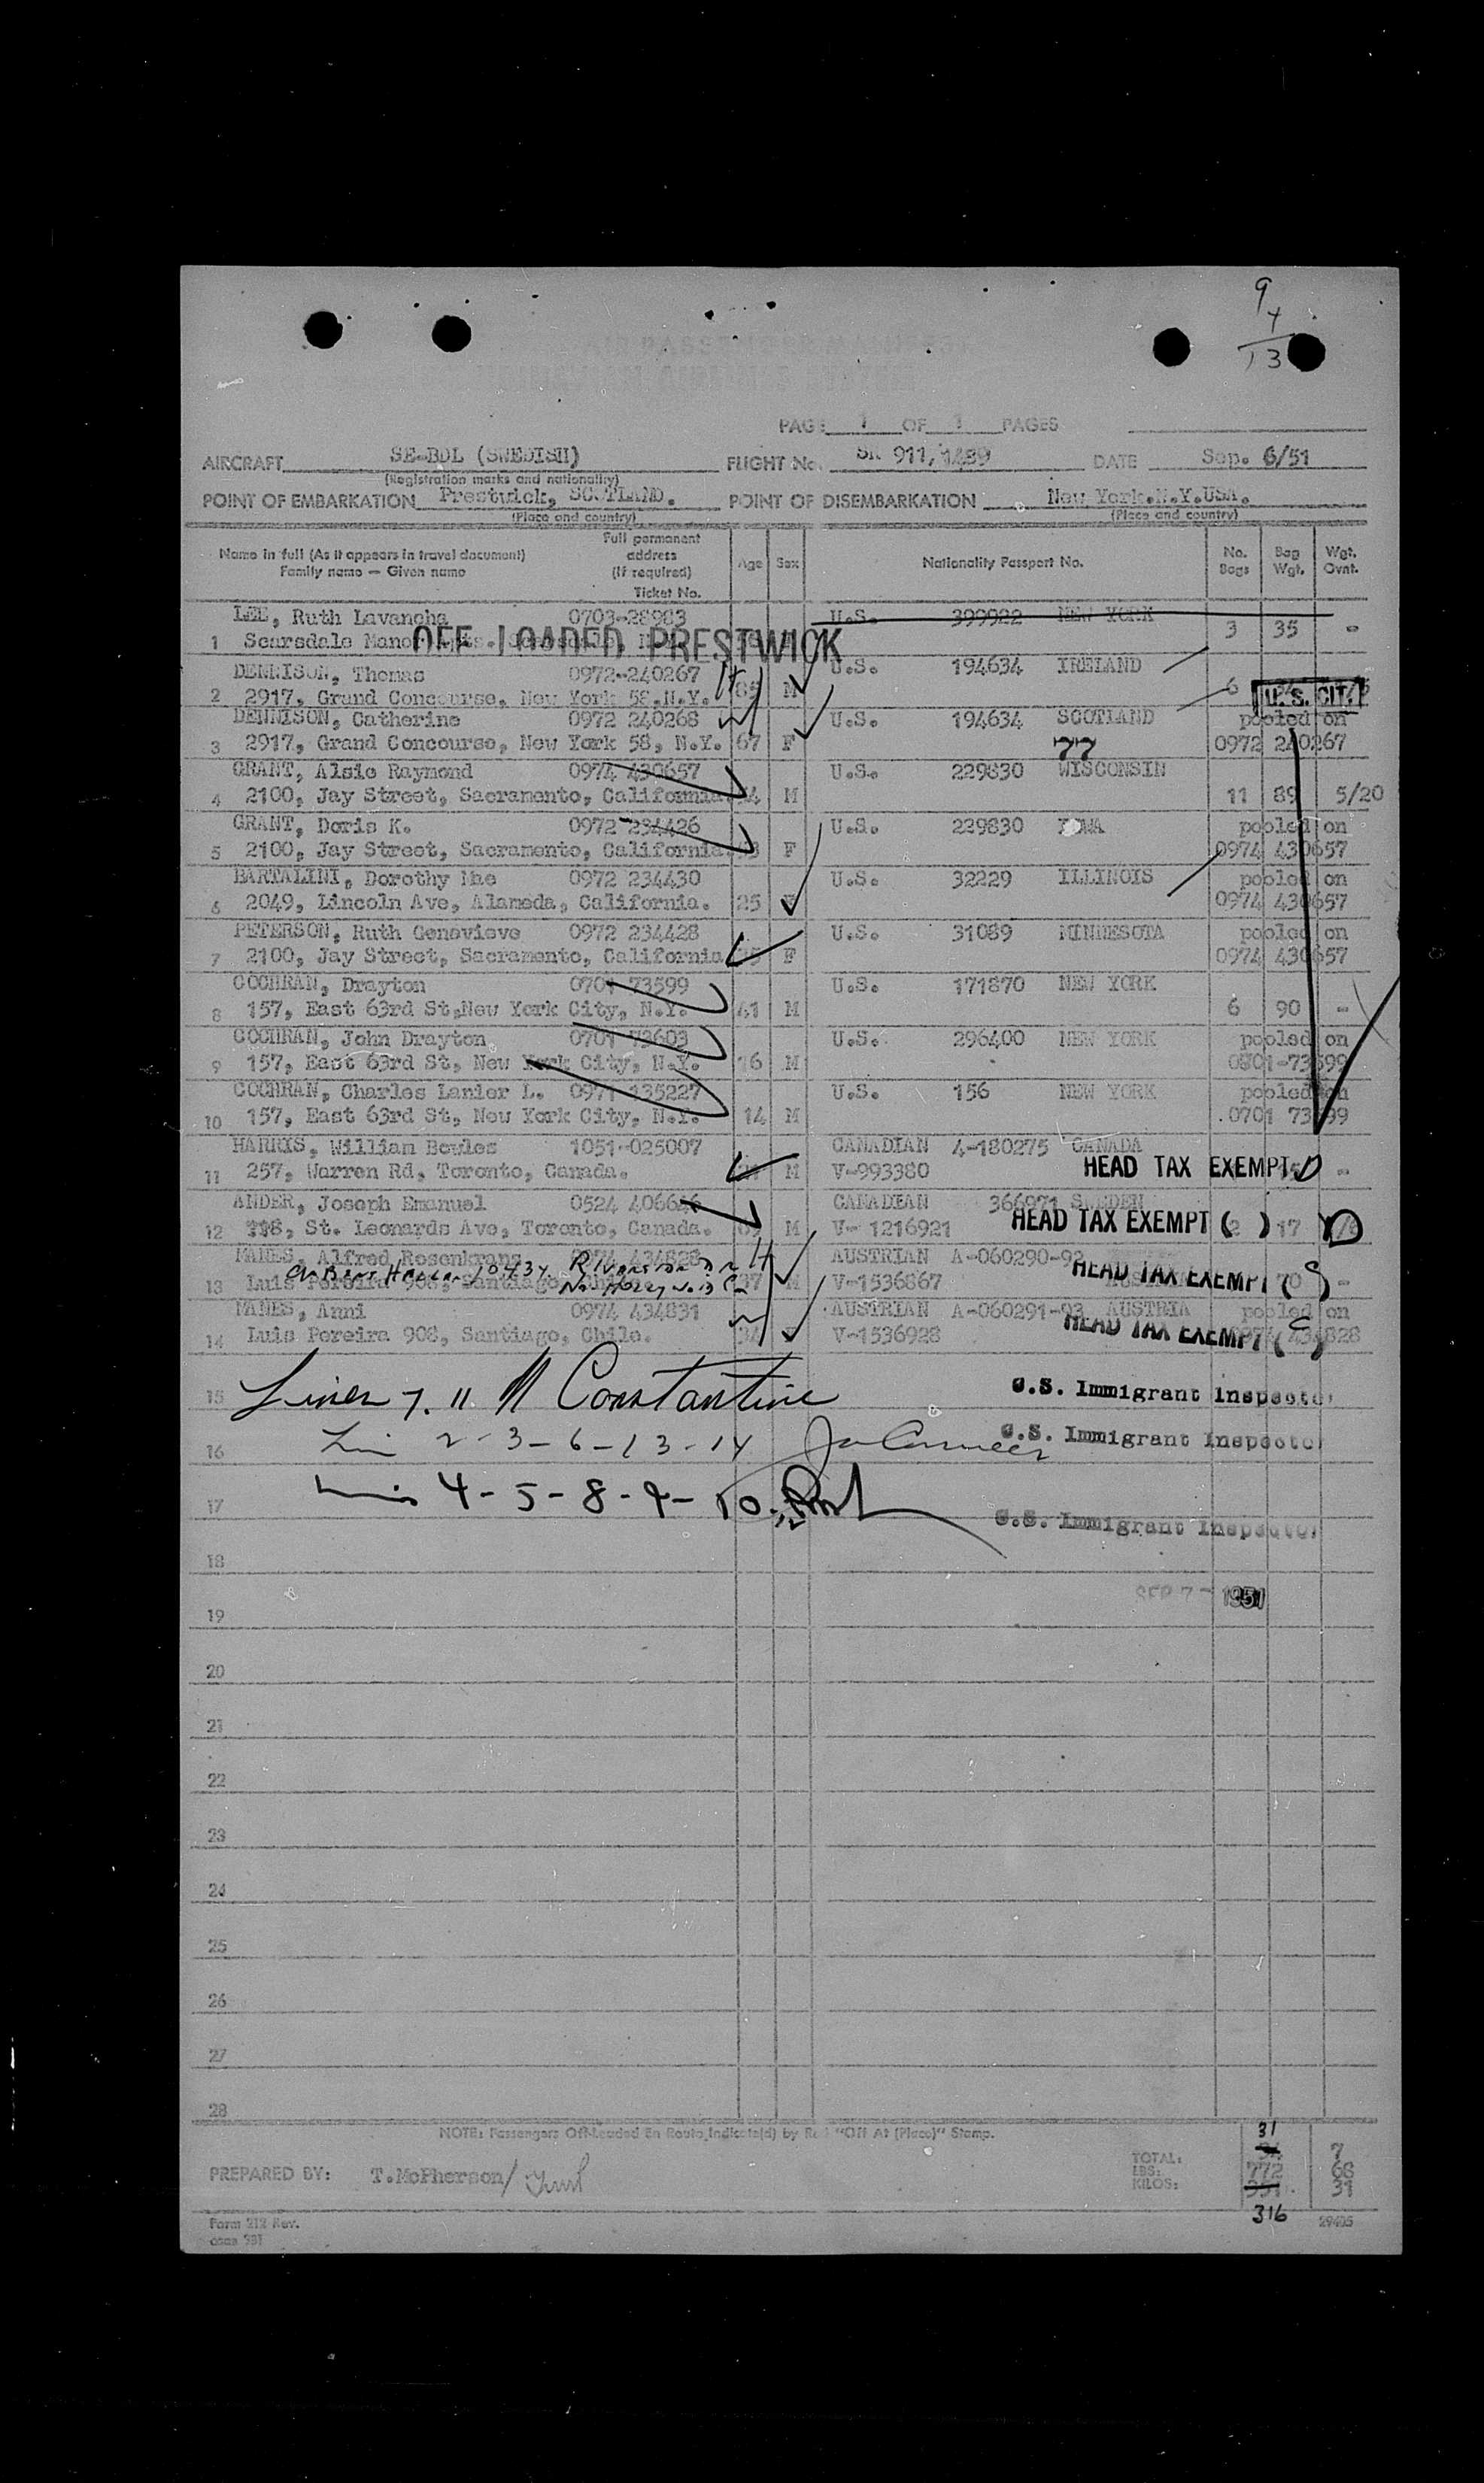 9
4
13
PAGE 1 OF 1 PAGES
AIRCRAFT SE-BDL (SWEDISH) FLIGHT No. SK 911,1489 DATE Sep. 6/51
(Registration marks and nationality)
POINT OF EMBARKATION Prestwick, SCOTLAND. POINT OF DISEMBARKATION New York.N.Y.USA.
(Place and country) (Place and country)
Name in full (As it appears in travel document) Family name — Given name Full permanent address (If required) Ticket No. Age Sex Nationality Passport No. No. Bags Bag Wgt. Wgt. Ovnt.
LEE, Ruth Lavancha 0703-28983 U.S. 399922 NEW YORK
1 Scarsdale Manor 3 35 -
OFF LOADED PRESTWICK
DENNISON, Thomas 0972-240267 U.S. 194634 IRELAND
2 2917, Grand Concourse, New York 58.N.Y. 65 M 6
U.S. CIT.
DENNISON, Catherine 0972 240268 U.S. 194634 SCOTLAND pooled on
3 2917, Grand Concourse, New York 58, N.Y. 67 F 77 0972 240267
GRANT, Alsie Raymond 0974 430657 U.S. 229830 WISCONSIN
4 2100, Jay Street, Sacramento, California. M 11 89 5/20
GRANT, Doris K. 0972 234426 U.S. 229830 IOWA pooled on
5 2100, Jay Street, Sacramento, California. F 0974 430657
BARTALINI, Dorothy Mae 0972 234430 U.S. 32229 ILLINOIS pooled on
6 2049, Lincoln Ave, Alameda, California. 25 F 0974 430657
PETERSON, Ruth Genevieve 0972 234428 U.S. 31089 MINNESOTA pooled on
7 2100, Jay Street, Sacramento, California F 0974 430657
COCHRAN, Drayton 0701 73599 U.S. 171870 NEW YORK
8 157, East 63rd St,New York City, N.Y. 41 M 6 90 -
COCHRAN, John Drayton 0701 73603 U.S. 296400 NEW YORK pooled on
9 157, East 63rd St, New York City, N.Y. 16 M 0701-73599
COCHRAN, Charles Lanier L. 0971 135227 U.S. 156 NEW YORK pooled on
10 157, East 63rd St, New York City, N.Y. 14 M 0701 73599
HARRIS, William Bowles 1051-025007 CANADIAN 4-180275 CANADA
11 257, Warren Rd, Toronto, Canada. M V-993380 HEAD TAX EXEMPT -
ANDER, Joseph Emanuel 0524 406646 CANADIAN 366971 SWEDEN
12 118, St. Leonards Ave, Toronto, Canada. 69 M V- 1216921 HEAD TAX EXEMPT ( ) 2 17
MANES, Alfred Rosenkranz 0974 434828 AUSTRIAN A-060290-92
10434 Riverside Dr
13 Luis Pereira 908, Santiago, Chile. 37 M V-1536867 HEAD TAX EXEMPT 70 -
MANES, Anni 0974 434831 AUSTRIAN A-060291-93 AUSTRIA pooled on
14 Luis Pereira 908, Santiago, Chile. 34 F V-1536928 HEAD TAX EXEMPT 434828
15 Lines 7. 11 M Constantine U.S. Immigrant Inspector
16 Lin 2-3-6-13-14 U.S. Immigrant Inspector
17 4-5-8-9-10 U.S. Immigrant Inspector
18
SEP 7 - 1951
19
20
21
22
23
24
25
26
27
28
NOTE: Passengers Off-Loaded En Route Indicate(d) by Red "Off At (Place)" Stamp.
31
PREPARED BY: T.McPherson/ TOTAL: 34 7
LBS: 772 68
KILOS: 351 31
316
Form 212 Rev. 29405